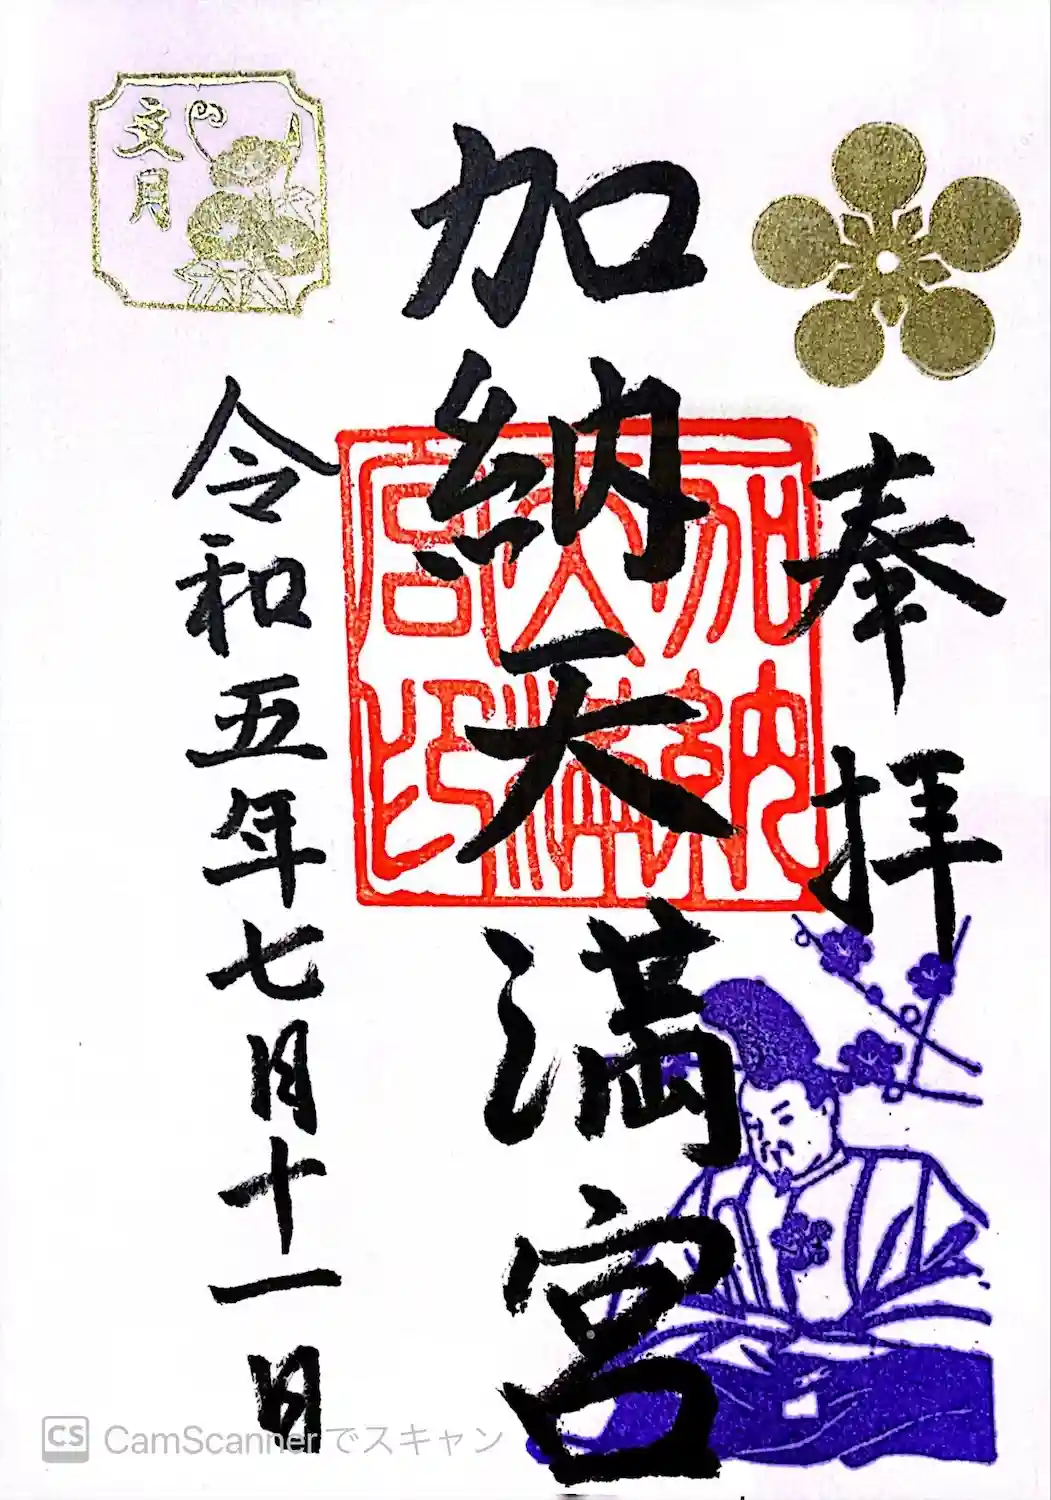 奉拝
加納天満宮
加納
天満
宮印
文月
令和五年七月十一日
CS CamScannerでスキャン